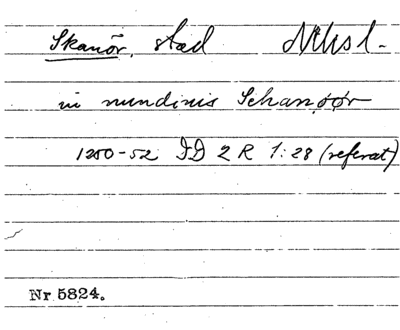 Skanör, stad
in nundinis Schanøør
1250-52 DD 2 R 1:28 (referat)
Nr 5824.